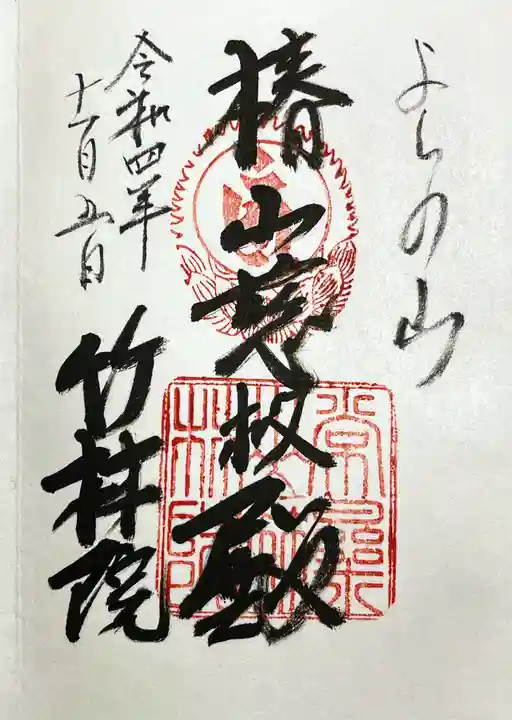 よしの山
椿山慈救殿
令和四年
十一月五日
竹林院